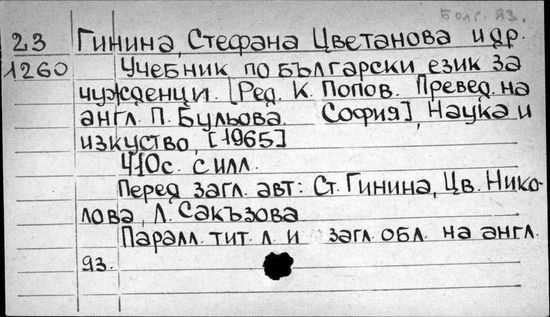 Болг. яз.
23 Гинина, Стефана Цветанова и др.
1260 Учебник по български език за
чужденци. [Ред. К. Попов. Превед. на
англ. П. Бульова. София], Наука и
изкуство, [1965]
410с. с илл.
Перед загл. авт: Ст. Гинина, Цв. Нико-
лова, Л. Сакъзова
Паралл. тит. л. и загл. обл. на англ.
яз.